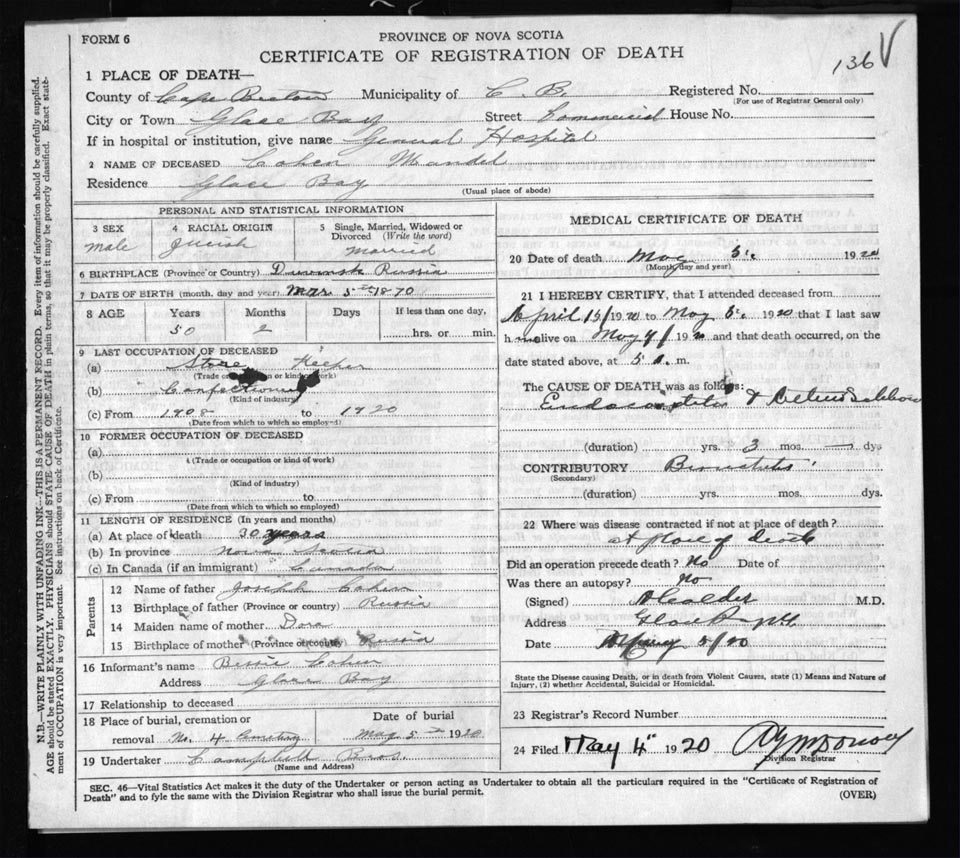 FORM 6
PROVINCE OF NOVA SCOTIA
CERTIFICATE OF REGISTRATION OF DEATH
136
1 PLACE OF DEATH—
County of Cape Breton Municipality of C. B. Registered No.
(For use of Registrar General only)
City or Town Glace Bay Street Commercial House No.
If in hospital or institution, give name General Hospital
2 NAME OF DECEASED Cohen Mandel
Residence Glace Bay
(Usual place of abode)
PERSONAL AND STATISTICAL INFORMATION
3 SEX 4 RACIAL ORIGIN 5 Single, Married, Widowed or Divorced (Write the word)
Male Jewish Married
6 BIRTHPLACE (Province or Country) Russia
7 DATE OF BIRTH (month, day and year) Mar 5 1870
8 AGE Years Months Days If less than one day,
50 2 hrs. or min.
9 LAST OCCUPATION OF DECEASED
(a) Store Keeper
(Trade or occupation or kind of work)
(b) Confectionery
(Kind of industry)
(c) From 1908 to 1920
(Date from which to which so employed)
10 FORMER OCCUPATION OF DECEASED
(a)
(Trade or occupation or kind of work)
(b)
(Kind of industry)
(c) From to
(Date from which to which so employed)
11 LENGTH OF RESIDENCE (In years and months)
(a) At place of death 30 years
(b) In province Nova Scotia
(c) In Canada (if an immigrant) Canada
Parents
12 Name of father Joseph Cohen
13 Birthplace of father (Province or country) Russia
14 Maiden name of mother Dora
15 Birthplace of mother (Province or country) Russia
16 Informant's name Bessie Cohen
Address Glace Bay
17 Relationship to deceased
18 Place of burial, cremation or removal No. 4 Cemetery Date of burial May 5 1920
19 Undertaker Campbell Bros.
(Name and Address)
MEDICAL CERTIFICATE OF DEATH
20 Date of death May 5 1920
(Month, day and year)
21 I HEREBY CERTIFY, that I attended deceased from
April 1920 to May 5 1920 that I last saw
him alive on May 4 1920 and that death occurred, on the
date stated above, at 5 a. m.
The CAUSE OF DEATH was as follows:
Endocarditis &
(duration) yrs. 3 mos. — dys
CONTRIBUTORY
(Secondary)
(duration) yrs. mos. dys.
22 Where was disease contracted if not at place of death?
at place of death
Did an operation precede death? No Date of
Was there an autopsy? No
(Signed) M.D.
Address Glace Bay
Date 5/20
State the Disease causing Death, or in death from Violent Causes, state (1) Means and Nature of
Injury, (2) whether Accidental, Suicidal or Homicidal.
23 Registrar's Record Number
24 Filed May 4" 1920
Division Registrar
SEC. 46—Vital Statistics Act makes it the duty of the Undertaker or person acting as Undertaker to obtain all the particulars required in the "Certificate of Registration of
Death" and to fyle the same with the Division Registrar who shall issue the burial permit.
(OVER)
N.B.—WRITE PLAINLY WITH UNFADING INK—THIS IS A PERMANENT RECORD. Every item of information should be carefully supplied.
AGE should be stated EXACTLY. PHYSICIANS should STATE CAUSE OF DEATH in plain terms, so that it may be properly classified. Exact state-
ment of OCCUPATION is very important. See instructions on back of Certificate.